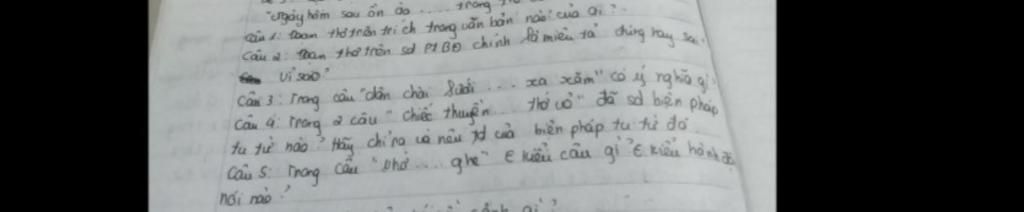 "Ngày hôm sau ồn ào .... trong
Câu 1: Đoạn thơ trên trích trong văn bản nào? của ai?
Câu 2: Đoạn thơ trên sd PTBĐ chính là miêu tả đúng hay sai.
Vì sao?
Câu 3: Trong câu "dân chài lưới ... xa xăm" có ý nghĩa gì
Câu 4: Trong 2 câu "chiếc thuyền ... thớ vỏ" đã sd biện pháp
tu từ nào? Hãy chỉ ra và nêu td của biện pháp tu từ đó
Câu 5: Trong câu "nhờ ... ghe" ∈ kiểu câu gì? ∈ kiểu hành đg
nói nào?
gì?